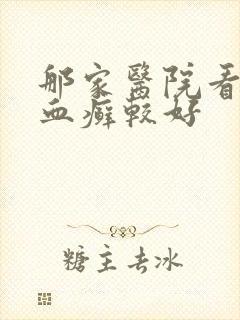 那家醫院看
血癬較好
糖主去冰